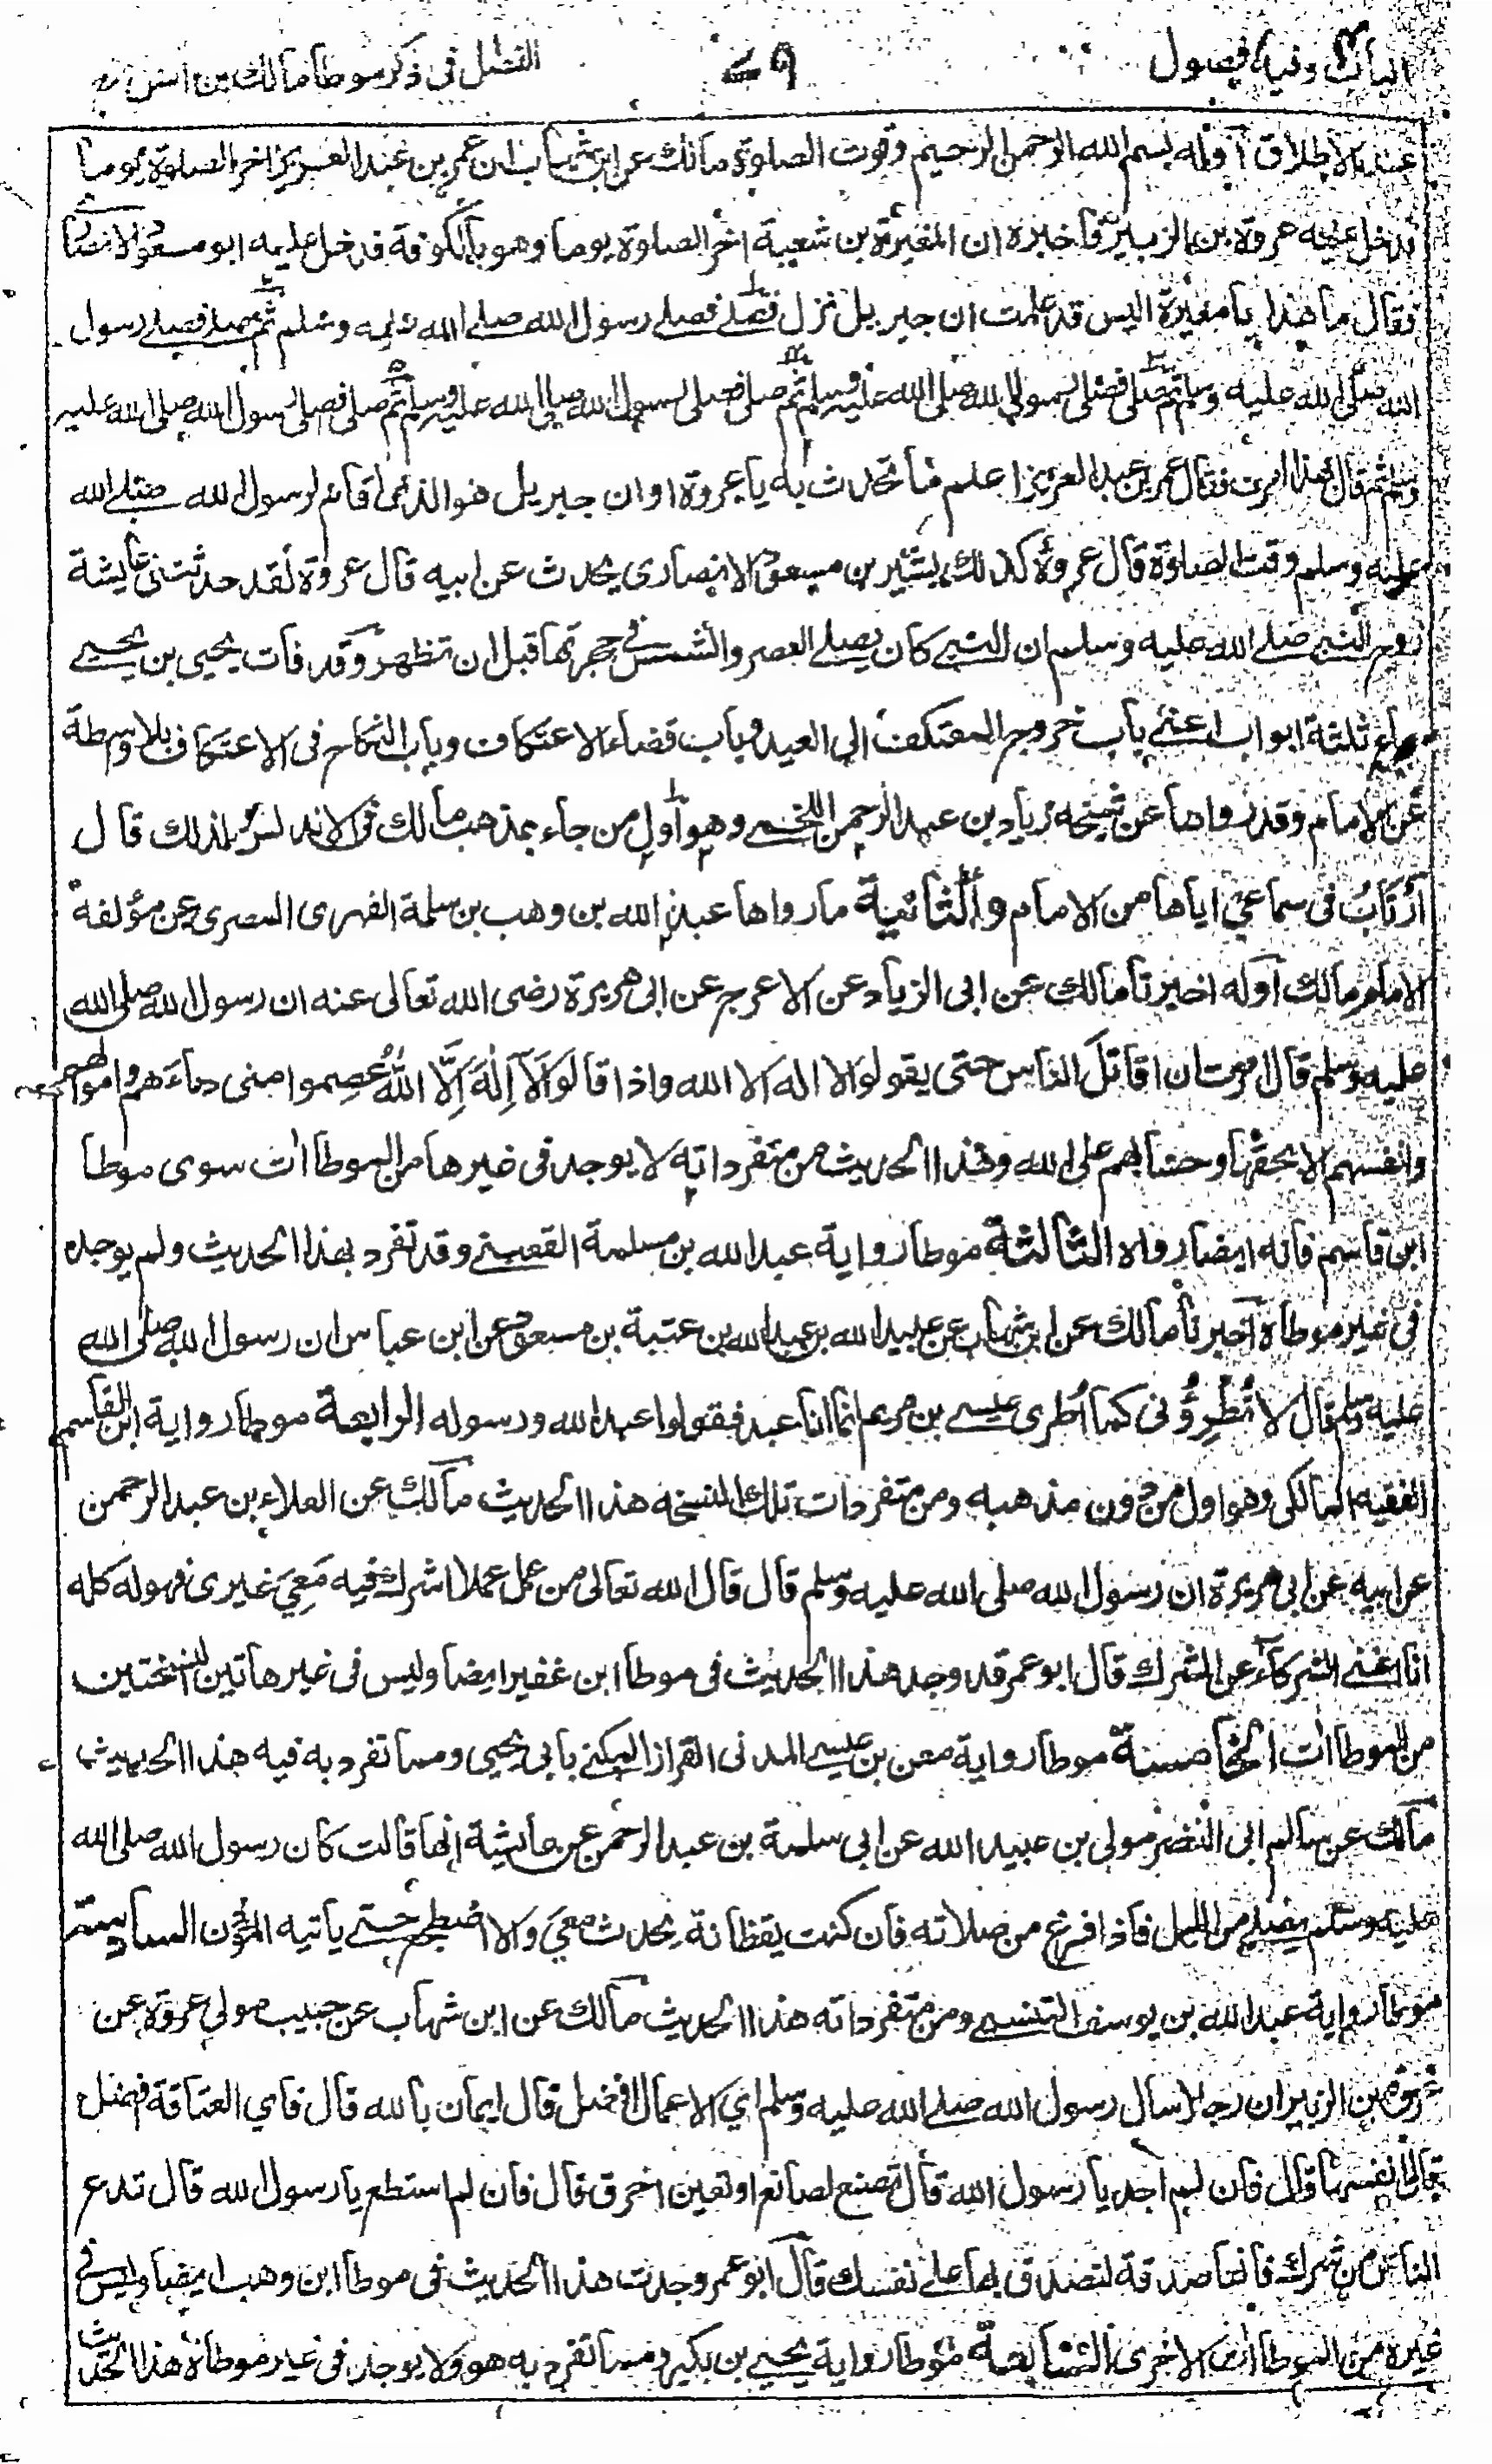 الباب وفيه فصول ٤٩ الفصل فی ذكر موطا مالك بن انس
عند الاطلاق اوله بسم الله الرحمن الرحيم وقوت الصلوة مالك عن ابن شهاب ان عمر بن عبد العزيز اخر الصلوة يوما
فدخل عليه عروة بن الزبير فاخبره ان المغيرة بن شعبة اخر الصلوة يوما وهو بالكوفة فدخل عليه ابو مسعود الانصاری
فقال ما هذا يا مغيرة اليس قد علمت ان جبريل نزل فصلے فصلے رسول الله صلے الله عليه وسلم ثم صلے فصلے رسول
الله صلی الله عليه وسلم ثم صلی فصلی رسول الله صلی الله عليه وسلم ثم صلی فصلی رسول الله صلی الله عليه وسلم ثم صلی فصلی رسول الله صلی الله عليه
وسلم ثم قال بهذا امرت فقال عمر بن عبد العزيز اعلم ما تحدث به يا عروة او ان جبريل هو الذی اقام لرسول الله صلے الله
عليه وسلم وقت الصلوة قال عروة كذلك بشير بن مسعود الانصاری يحدث عن ابيه قال عروة لقد حدثتنی عايشة
زوج النبی صلے الله عليه وسلم ان النبے كان يصلے العصر والشمس فے حجرتها قبل ان تظهر وقد فات يحيی بن يحيے
سماع ثلثة ابواب اعنے باب خروج المعتكف الی العيد وباب قضاء الاعتكاف وباب النكاح فی الاعتكاف بلا واسطة
عن الامام وقد رواها عن شيخه زياد بن عبد الرحمن اللخمے وهو اول من جاء بمذهب مالك فی الاندلس لذلك قال
ارتاب فی سماعی اياها من الامام والثانية ما رواها عبد الله بن وهب بن سلمة الفهری المصری عن مؤلفه
الامام مالك اوله اخبرنا مالك عن ابی الزياد عن الاعرج عن ابی هريرة رضی الله تعالی عنه ان رسول الله صلی الله
عليه وسلم قال امرت ان اقاتل الناس حتی يقولوا لا اله الا الله واذا قالوا لَآ اِلٰهَ اِلَّا اللّٰهُ عصموا منی دماءهم واموالهم
وانفسهم الا بحقها وحسابهم علی الله وهذا الحديث من متفرداته لا يوجد فی غيرها من الموطاات سوی موطا
ابن قاسم فانه ايضا رواه الثالثة موطا رواية عبد الله بن مسلمة القعنبے وقد تفرد بهذا الحديث ولم يوجد
فی غير موطاه اخبرنا مالك عن ابن شهاب عن عبيد الله بن عبد الله بن عتبة بن مسعود عن ابن عباس ان رسول الله صلی الله
عليه وسلم قال لا تُطْرُوْنی كما اُطری عيسے بن مريم انما انا عبد فقولوا عبد الله ورسوله الرابعة موطا رواية ابن القاسم
الفقيه المالكی وهو اول من دون مذهبه ومن متفردات تلك النسخه هذا الحديث مالك عن العلاء بن عبد الرحمن
عن ابيه عن ابی هريرة ان رسول الله صلی الله عليه وسلم قال قال الله تعالی من عمل عملا اشرك فيه مَعِیَ غيری فهو له كله
انا اغنے الشركاء عن الشرك قال ابو عمر قد وجد هذا الحديث فی موطا ابن غفير ايضا وليس فی غير هاتين النسختين
من الموطاات الخامسة موطا رواية معن بن عيسے المدنی القراز المكنے بابی يحيی ومما تفرد به فيه هذا الحديث
مالك عن سالم ابی النضر مولی بن عبيد الله عن ابی سلمة بن عبد الرحمن عن عايشة انها قالت كان رسول الله صلی الله
عليه وسلم يصلے من الليل فاذا فرغ من صلاته فان كنت يقظانة يحدث معی والا اضطجع حتے ياتيه المؤذن السادسة
موطا رواية عبد الله بن يوسف التنيسے ومن متفرداته هذا الحديث مالك عن ابن شهاب عن حبيب مولی عروة عن
عروة بن الزبير ان رجلا سال رسول الله صلے الله عليه وسلم ای الاعمال افضل قال ايمان بالله قال فای العتاقة افضل
قال انفسها قال فان لم اجد يا رسول الله قال تصنع لصانع او تعين اخرق قال فان لم استطع يا رسول الله قال تدع
الناس من شرك فانها صدقة لتصدق بها علے نفسك قال ابو عمر وجدت هذا الحديث فی موطا ابن وهب ايضا وليس فے
غيره من الموطاات الاخری السابعة موطا رواية يحيے بن بكير ومما تفرد به هو ولا يوجد فی غير موطاه هذا الحديث